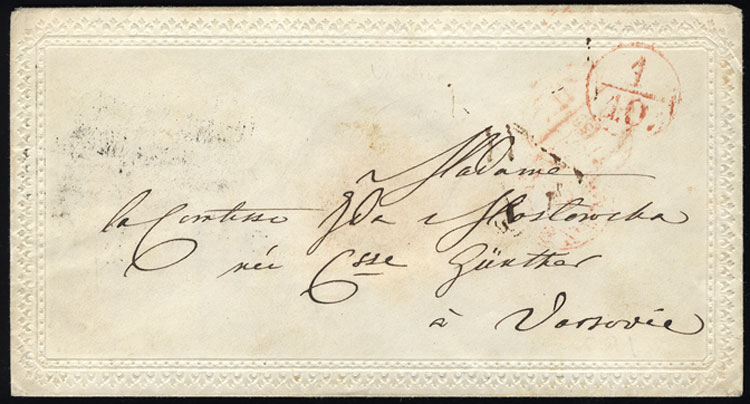 1
40.
Madame
la Comtesse Ida Mostowska
née Csse Günther
à Varsovie